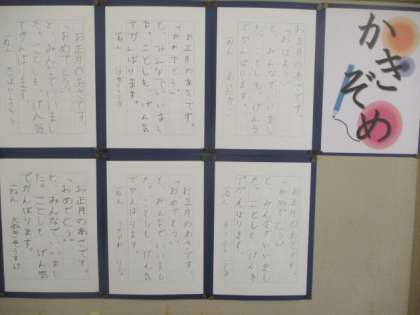 かきぞめ
お正月のあさです。
「おはよう。
と、みんなでいいまし
た。ことしも、げん気
でがんばります。
一ねん
お正月のあさです。
「おめでとう。
と、みんなでいいまし
た。ことしも、げん気
でがんばります。
一ねん
お正月のあさです。
「おめでとう。
と、みんなでいいまし
た。ことしも、げん気
でがんばります。
一ねん
お正月のあさです。
「おめでとう。
と、みんなでいいまし
た。ことしも、げん気
でがんばります。
一ねん
お正月のあさです。
「おめでとう。
と、みんなでいいまし
た。ことしも、げん気
でがんばります。
一ねん
お正月のあさです。
「おめでとう。
と、みんなで、いいまし
た。ことしも、げん気
でがんばります。
一ねん